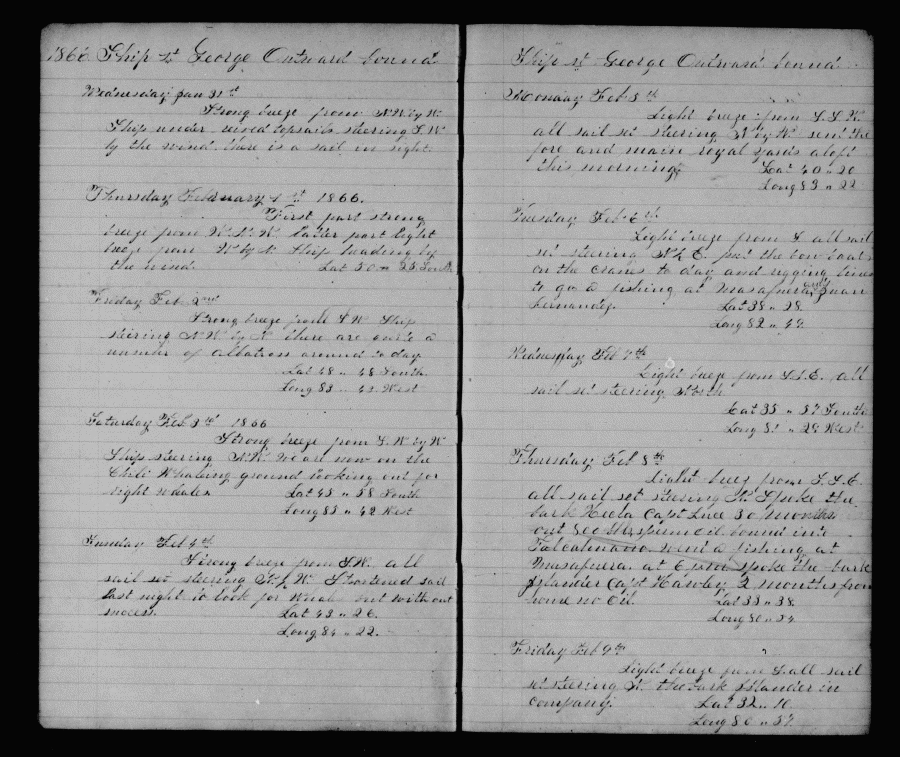 1866 Ship St George Outward bound
Wednesday Jan 31st
Strong breeze from N.W. by W.
Ship under reived topsails steering S.W.
by the wind there is a sail in sight
Thursday February 1st 1866.
First part strong
breeze from W.N.W. latter part light
breeze from W by N. Ship heading by
the wind. Lat 50 " 25 South
Friday Feb 2nd
Strong breeze from S.W. Ship
steering N.W. by N. there are quite a
number of albatross around to day
Lat 48 " 48 South
Long 83 " 43 West
Saturday Feb 3rd 1866
Strong breeze from S.W. by W
Ship steering N.W. we are now on the
Chili Whaling ground looking out for
right whales Lat 45 " 58 South
Long 83 " 42 West
Sunday Feb 4th
Strong breeze from S.W. all
sail set steering N. by W. Shortened sail
last night to look for whales but without
success. Lat 43 " 26.
Long 84 " 22.
Ship St George Outward bound
Monday Feb 5th
Light breeze from S.S.W.
all sail set steering N by W. sent the
fore and main royal yards aloft
this morning Lat 40 " 20
Long 83 " 22
Tuesday Feb 6th
Light breeze from S. all sail
set steering N.E. put the bow boat
on the cranes to day and rigging lines
to go a fishing at Masafuera and Juan
Fernandez. Lat 38 " 28.
Long 82 " 49.
Wednesday Feb 7th
Light breeze from S.S.E. all
sail set steering North
Lat 35 " 57 South
Long 81 " 28 West
Thursday Feb 8th
Light breeze from S.S.E.
all sail set steering N. Spoke the
bark Hecla Capt Luce 30 months
out 500 bbls sperm oil bound into
Talcahuano. went a fishing at
Masafuera. at 6 p.m. spoke the bark
Islander Capt Hawley 2 months from
home no Oil. Lat 33 " 38.
Long 80 " 54.
Friday Feb 9th
Light breeze from S. all sail
set steering N. the bark Islander in
company. Lat 32 " 10.
Long 80 " 57.